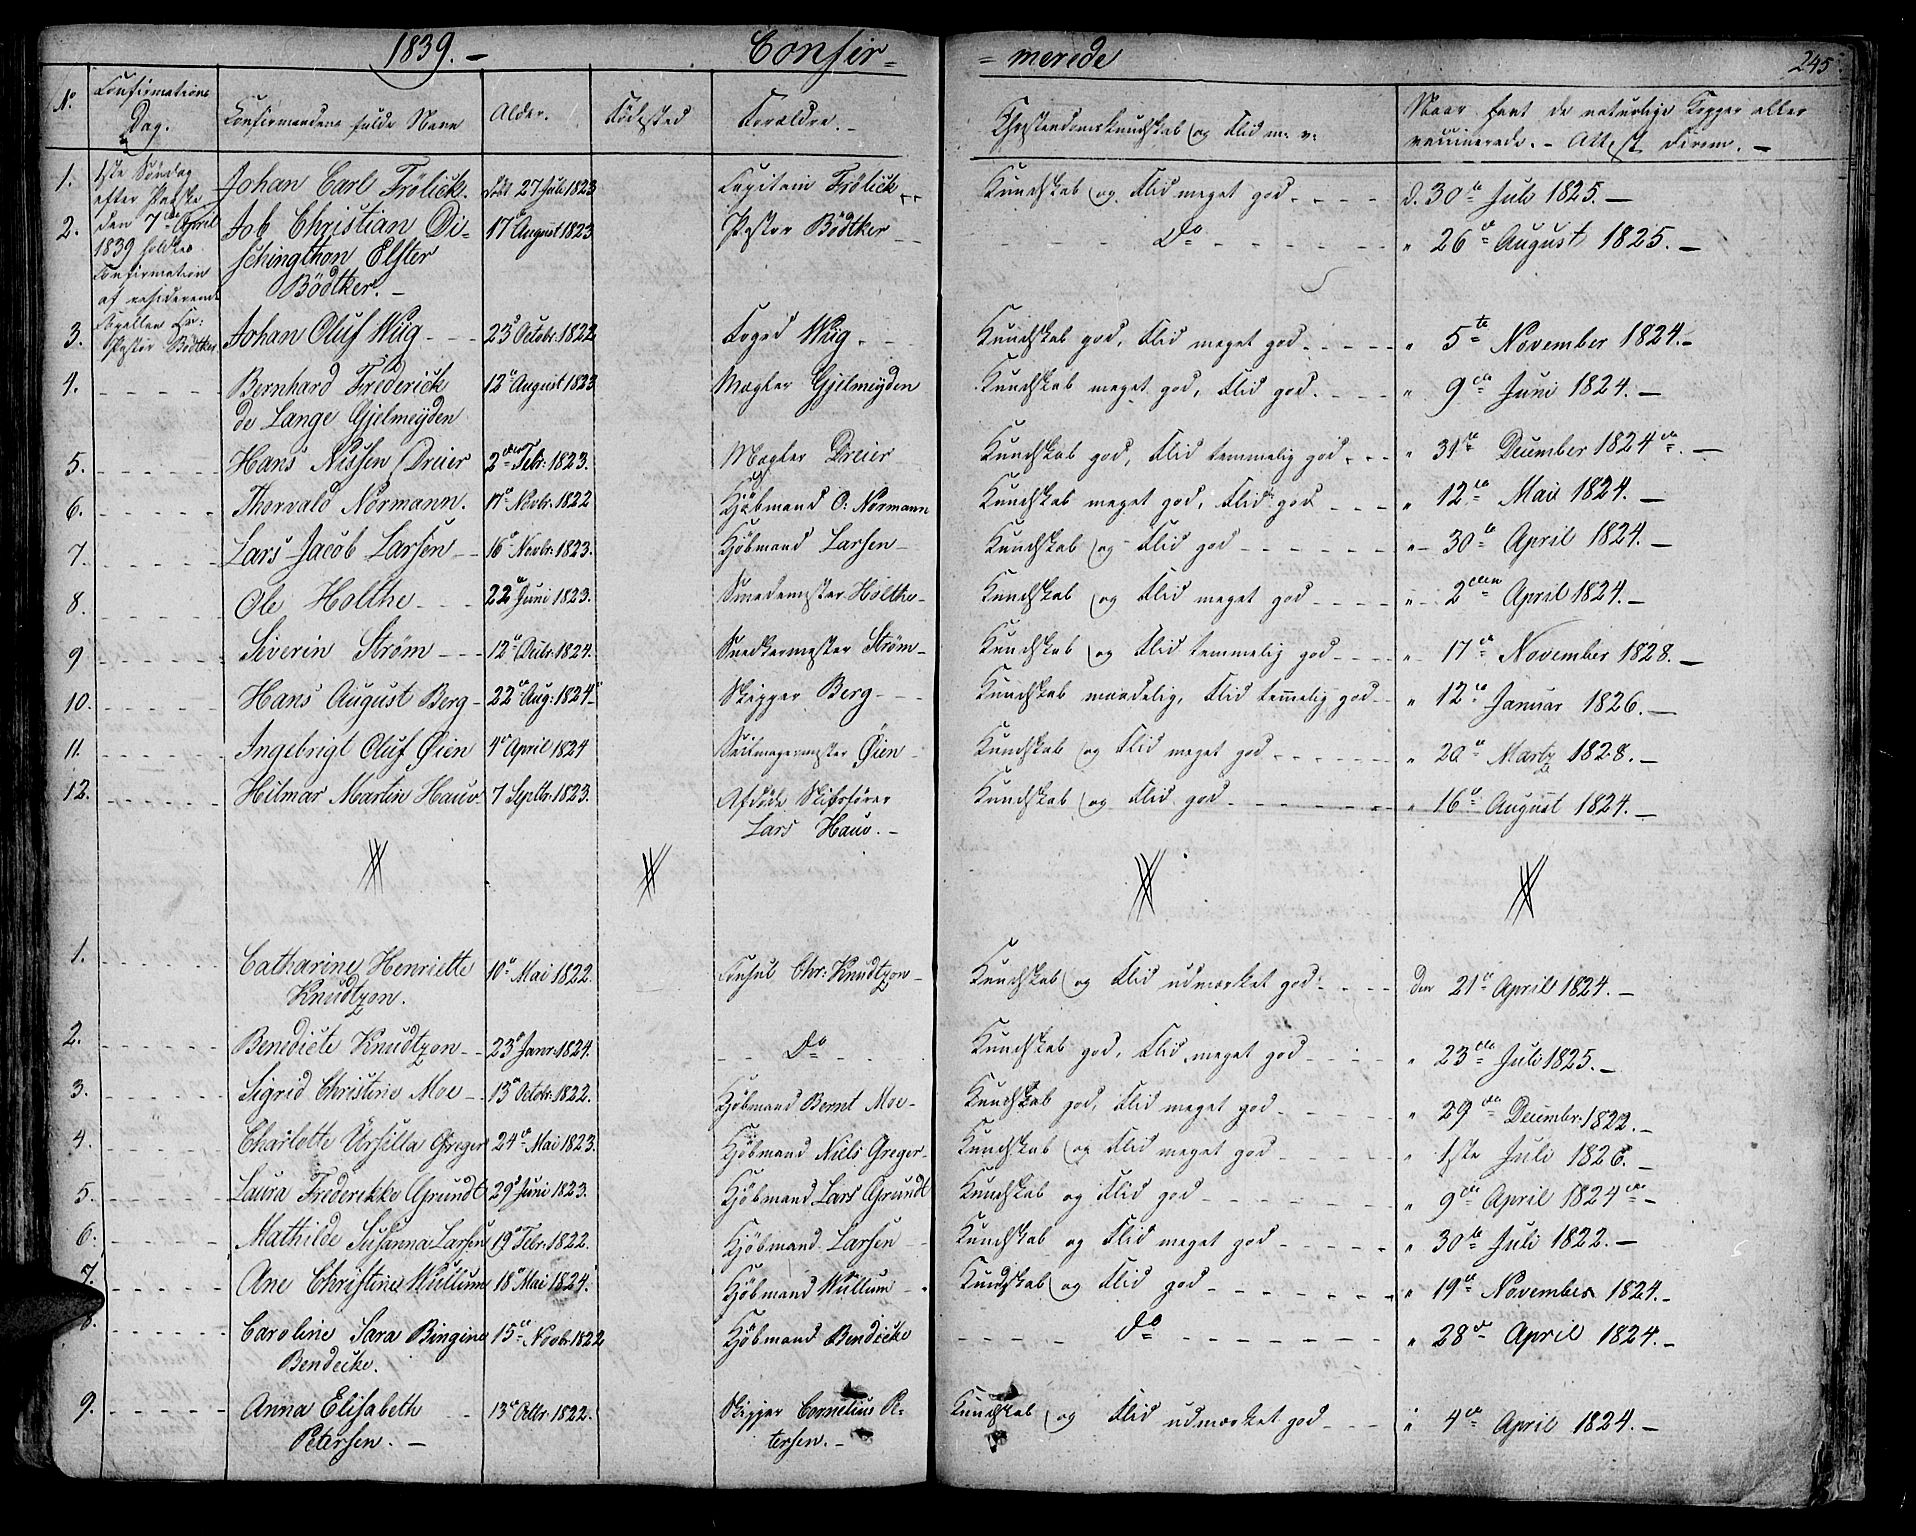 1839. - Confir- = merede 245
No. Confirmations Dag. Confirmandens fulde Navn Alder. Födested Forældre. - Christendomskundskab og Flid m. v. Naar havt de naturlige Kopper eller
vaccinerede. - Attest derom. -
1. 1ste Söndag efter Paaske den 7de April 1839 holdtes Confirmation af residerende Capellan Hr: Pastor Bödtker Johan Carl Frölich. født 27 Juli 1823 Capitain Frölich Kundskab og Flid meget god d. 30te Juli 1825. -
2. Job Christian Di- 17de August 1823 Pastor Bödtker Do " 26de August 1825. -
schingthon Elster
Bödtker. -
3. Johan Oluf Wüg 23de Octobr. 1822 Foged Wüg Kundskab god, Flid meget god " 5te November 1824. -
4. Bernhard Frederick 12te August 1823 Mægler Gjelmeyden Kundskab meget god, Flid god " 9de Juni 1824. -
de Lange Gjelmeyden
5. Hans Nissen Dreier 2den Febr: 1823. Mægler Dreier Kundskab god, Flid temmelig god " 31te December 1824de. -
6. Thorvald Normann. 17de Novbr. 1822 Kjöbmand O: Normann Kundskab meget god, Flid god " 12te Mai 1824. -
7. Lars Jacob Larsen 16de Novbr: 1823. Kjöbmand Larsen Kundskab og Flid god " 30te April 1824. -
8. Ole Holthe 22de Juni 1823. Smedemester Holthe Kundskab og Flid meget god " 2den April 1824. -
9 Siverin Ström 12te Decbr. 1824. Snedkermester Ström Kundskab og Flid temmelig god " 17de November 1828. -
10. Hans August Berg 22de Aug: 1824 Skipper Berg Kundskab maadelig, Flid temmelig god " 12te Januar 1826. -
11. Ingebrigt Oluf Øien 4de April 1824 Seilmagermester Øien Kundskab og Flid meget god " 20de Martz 1828. -
12. Hilmar Martin Hauv 7 Septbr. 1823. Afdöde Skibsförer Kundskab og Flid god " 16de August 1824. -
Lars Hauv. -
1. Catharine Henriette 10de Mai 1822. Consul Chr: Knudtzon Kundskab og Flid udmærket god Den 21de April 1824. -
Knudtzon.
2. Benedicte Knudtzon 23de Janr: 1824. Do Kundskab god, Flid meget god " 23de Juli 1825. -
3. Sigrid Christine Moe 13de Octobr. 1822. Kjöbmand Bernt Moe Kundskab god, Flid meget god " 29de Decembr: 1822. -
4. Charlotte Ursilla Greger 24de Mai 1823. Kjöbmand Niels Greger Kundskab og Flid meget god " 1ste Juli 1826. -
5. Laura Frederikke Grundt 29de Juni 1823. Kjöbmand Lars Grundt Kundskab og Flid god " 9de April 1824de -
6. Mathilde Susanna Larsen 19de Febr. 1822. Kjöbmand Larsen Kundskab og Flid meget god " 30te Juli 1822. -
7. Ane Christine Wullum 18de Mai 1824. Kjöbmand Wullum Kundskab og Flid god " 19de November 1824. -
8. Caroline Sara Bingine 15de Novbr. 1822 Kjöbmand Bendeche Do " 28de April 1824. -
Bendeche.
9. Anna Elisabeth 13de Octbr. 1822. Skipper Cornelius Pe- Kundskab og Flid udmærket god " 4de April 1824. -
Petersen. - tersen. -